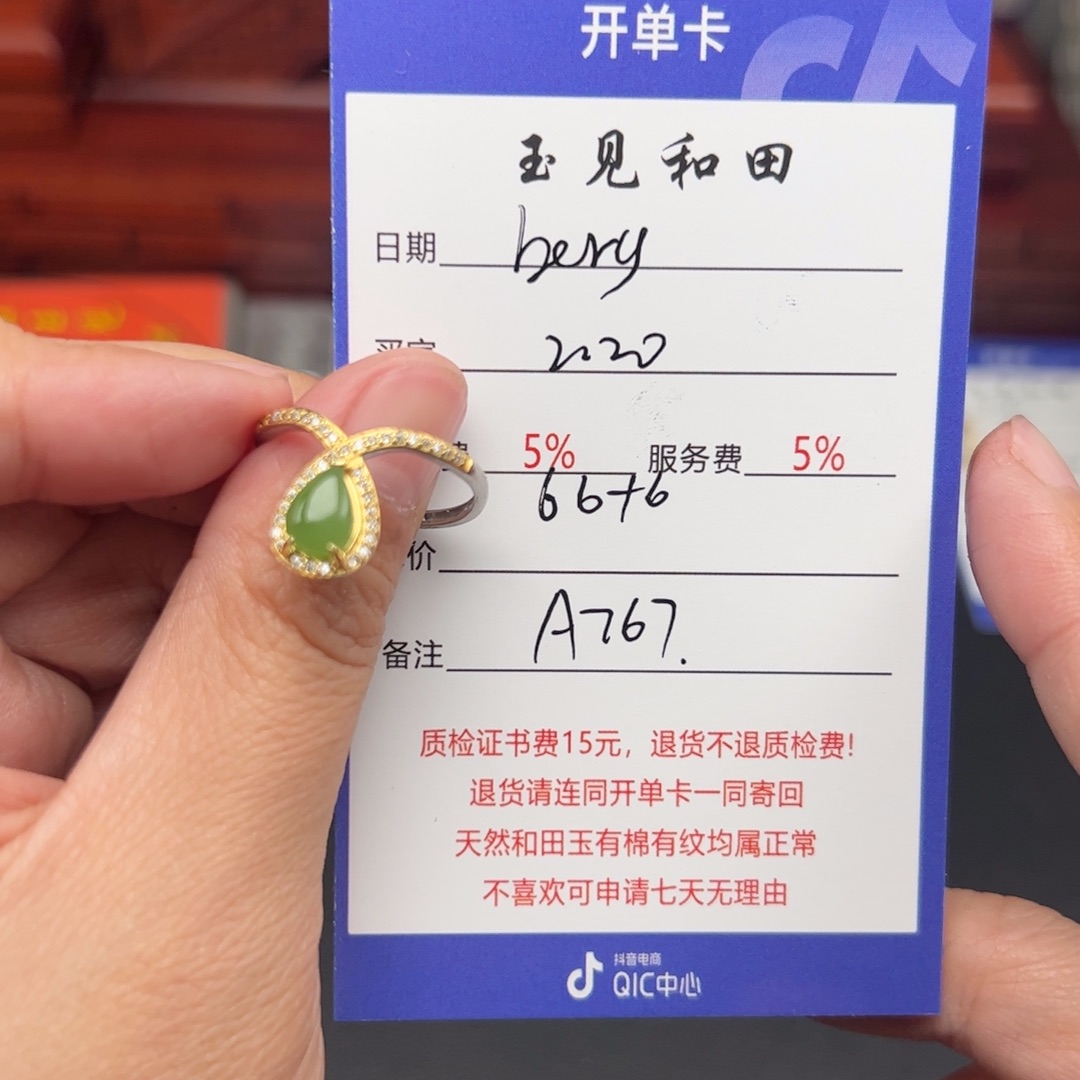 开单卡
玉见和田
日期 bery
买家 2020
5% 服务费 5%
66+6
价
备注 A767.
质检证书费15元，退货不退质检费！
退货请连同开单卡一同寄回
天然和田玉有棉有纹均属正常
不喜欢可申请七天无理由
抖音电商
QIC中心